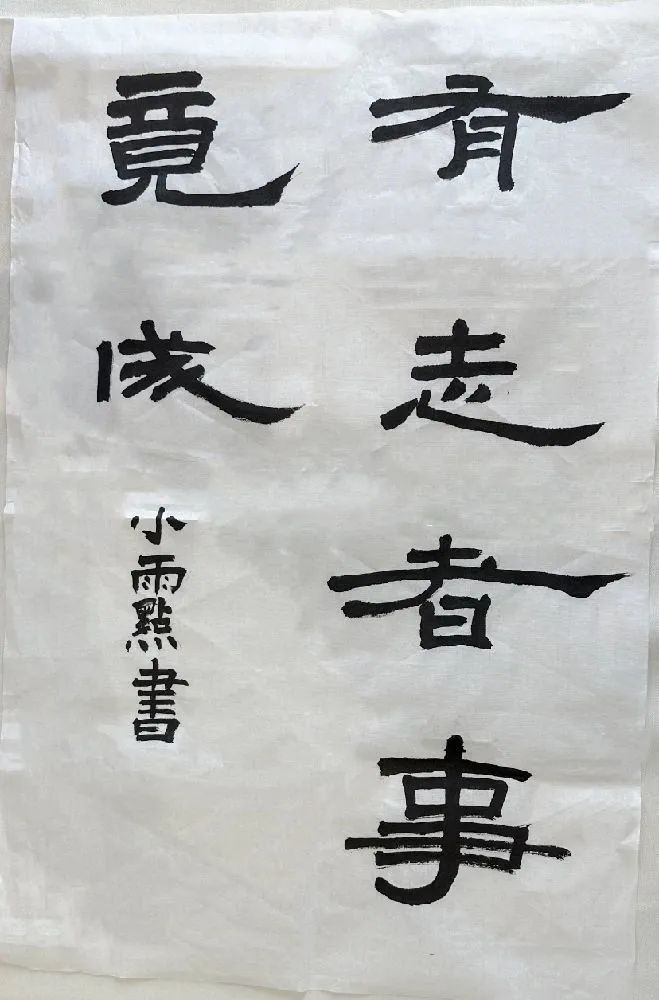 有志者事
竟成
小雨點書